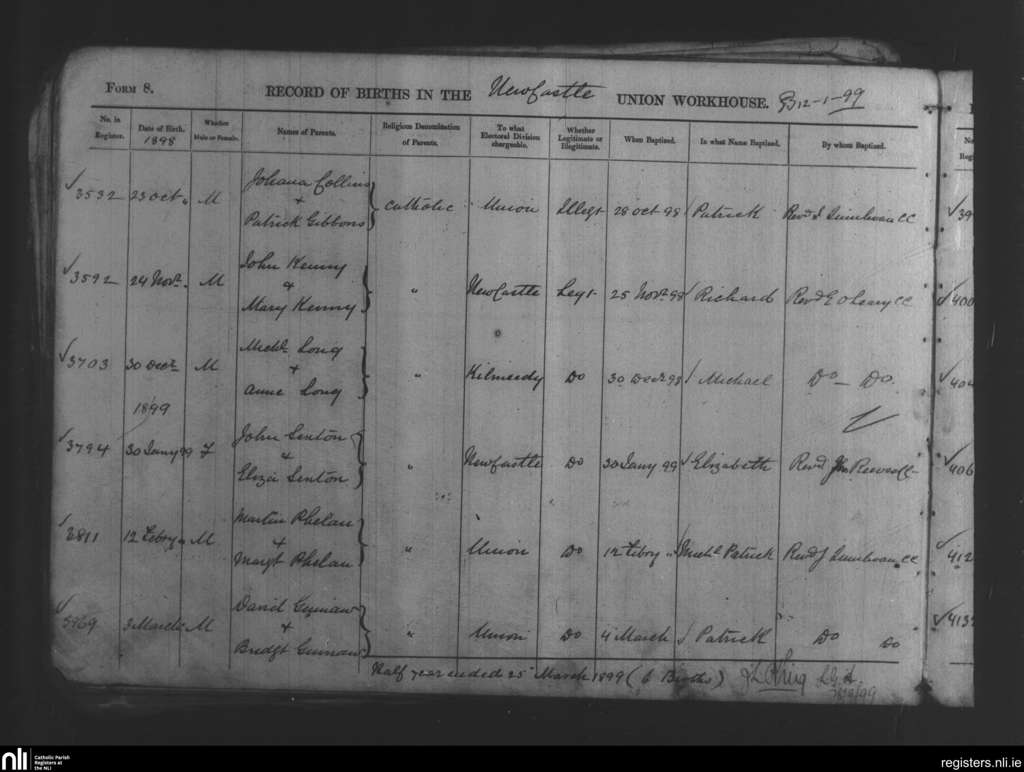 Form 8. RECORD OF BIRTHS IN THE Newcastle UNION WORKHOUSE. 12-1-99
No. in Register. Date of Birth. 1898 Whether Male or Female. Names of Parents. Religious Denomination of Parents. To what Electoral Division chargeable. Whether Legitimate or Illegitimate. When Baptized. In what Name Baptized. By whom Baptized.
3532 23 Oct " M Johana Collins + Patrick Gibbons Catholic Union Illegt 28 Oct 98 Patrick Revd CC
3592 24 Novr " M John Kenny + Mary Kenny " Newcastle Legt 25 Novr 98 Richard Revd E O'Leary CC
3703 30 Decr M Michl Long + Anne Long " Kilmeedy Do 30 Decr 98 Michael Do – Do
1899
3794 30 Jany 99 F John Sexton + Eliza Sexton " Newcastle Do 30 Jany 99 Elizabeth Revd
3811 12 Febry " M Martin Phelan + Margt Phelan " Union Do 12 Febry " Michl Patrick Revd J CC
3 March M David + Bridgt " Union Do 4 March Patrick Do Do
Half year ended 25 March 1899 (6 Births)
nli Catholic Parish Registers at the NLI
registers.nli.ie